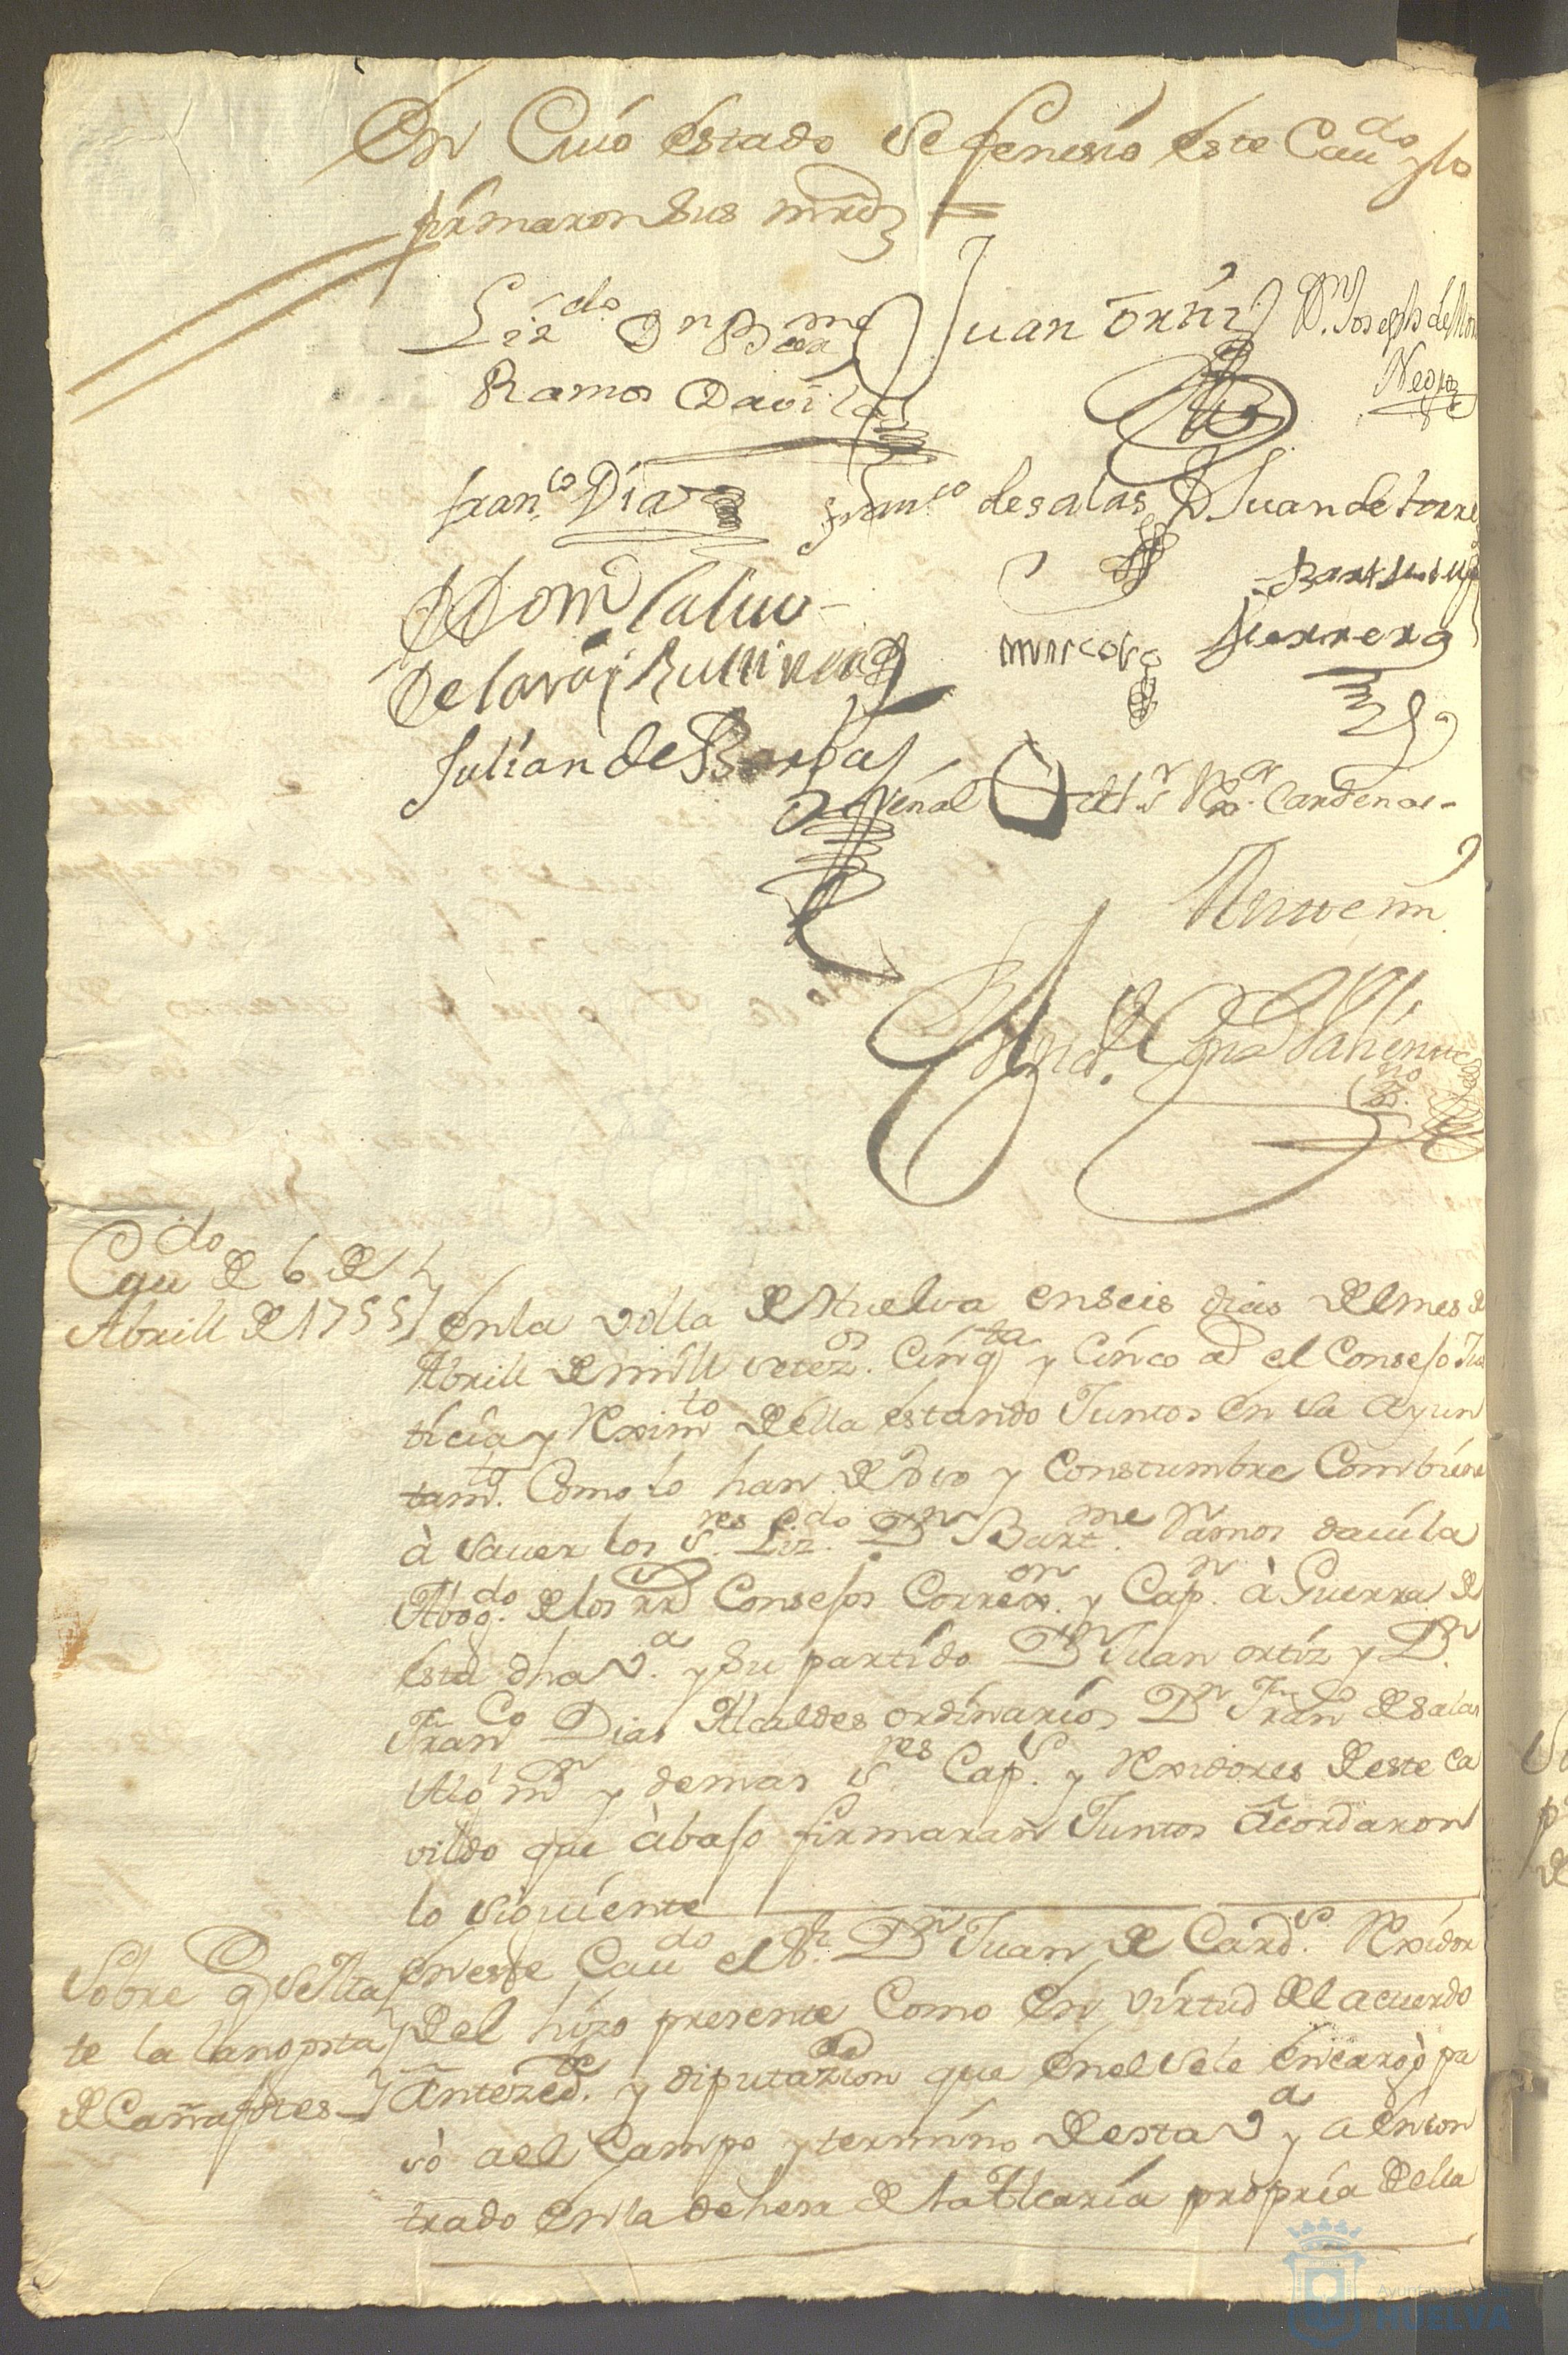 En Cuió éstado se fenesió éste Cau.do y lo
firmaron sus mrds =
Liz.do Dn Bme
Ramos Davila
Juan Ortiz
Dn. Joseph de
Negro
Fran.co Diaz
Fran.co de salas
D Juan de torre
Dom
Julian de Borja
marcos
Barthme
Herrera
Señal del Sr Rxor. Cardenas
Antte mi
Cau.do de 6 de
Abrill de 1755
En la villa de Huelva en seis dias del mes de
Abrill de mill setezos. Cinqta y Cinco ad el Consejo Jus
ticia y Reximto della éstando Juntos en su ayun
tamto. Como lo han de vso y Constumbre Combiene
à saver los Sres. Lizdo. Dn Bartme. Ramos davila
Abogdo. de los rrs Consejos Correxor. y Capn. à Guerra de
ésta dha Va. y su partido Dn Juan ortiz y Dn.
Franco Dias Alcaldes ordinarios Dn Franco de salas
Algl mr y demas Sres. Caps. y Rexidores deste ca
vildo que àbajo firmaran Juntos Acordaron
lo siguiente
Sobre q se
te la lanogsta
de Cañafotes
en este Caudo el Sr. Dn Juan de Cards. Rexidor
del hizo presente Como en virtud del acuerdo
Antezedte. y diputazion que en el se le encargò pa
sò a el Campo y termino desta Va y a encon
trado en la dehesa de la Alcaria propria della
Ayuntamiento
HUELVA